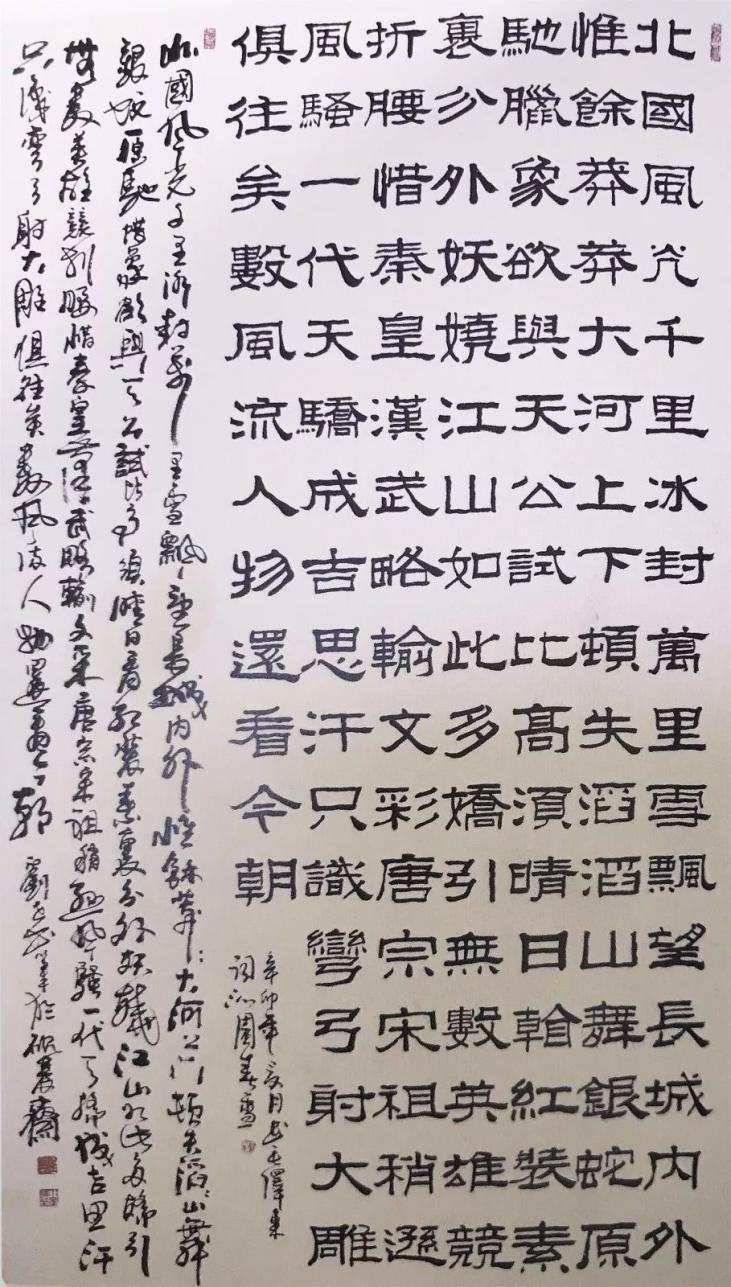 北國風光千里冰封萬里雪飄望長城內外
惟餘莽莽大河上下頓失滔滔山舞銀蛇原
馳臘象欲與天公試比高須晴日看紅裝素
裹分外妖嬈江山如此多嬌引無數英雄競
折腰惜秦皇漢武略輸文彩唐宗宋祖稍遜
風騷一代天驕成吉思汗只識彎弓射大雕
俱往矣數風流人物還看今朝
辛卯年夏月書毛澤東
詞沁園春雪
北國風光千里冰封萬里雪飄望長城內外惟餘莽莽大河上下頓失滔滔山舞
銀蛇原馳蠟象欲與天公試比高須晴日看紅裝素裹分外妖嬈江山如此多嬌引
無數英雄競折腰惜秦皇漢武略輸文采唐宗宋祖稍遜風騷一代天驕成吉思汗
只識彎弓射大雕俱往矣數風流人物還看今朝 劉